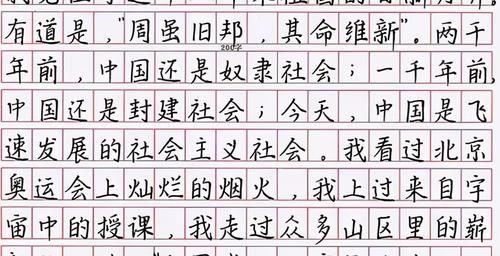 有道是，“周虽旧邦，其命维新”。两千
200字
年前，中国还是奴隶社会；一千年前，
中国还是封建社会；今天，中国是飞
速发展的社会主义社会。我看过北京
奥运会上灿烂的烟火，我上过来自宇
宙中的授课，我走过众多山区里的崭